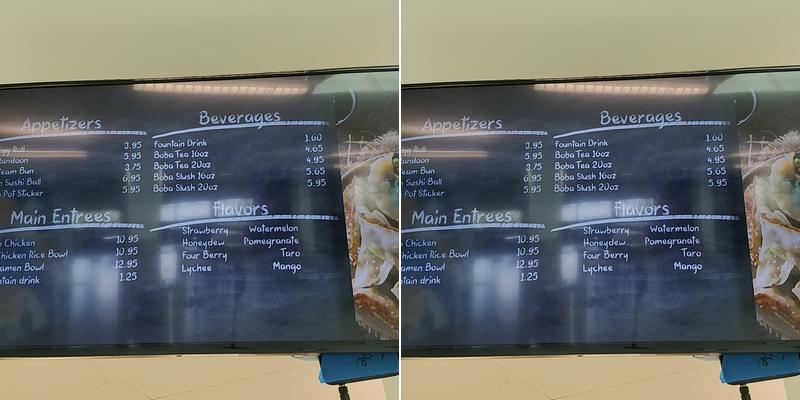 Appetizers
Roll 3.95
5.95
Bun 3.75
Sushi Ball 6.95
Pot Sticker 5.95
Beverages
Fountain Drink 1.60
Boba Tea 16oz 4.65
Boba Tea 20oz 4.95
Boba Slush 16oz 5.65
Boba Slush 20oz 5.95
Main Entrees
Chicken 10.95
Chicken Rice Bowl 10.95
Bowl 12.95
drink 1.25
Flavors
Strawberry Watermelon
Honeydew Pomegranate
Four Berry Taro
Lychee Mango
Appetizers
Roll 3.95
5.95
Bun 3.75
Sushi Ball 6.95
Pot Sticker 5.95
Beverages
Fountain Drink 1.60
Boba Tea 16oz 4.65
Boba Tea 20oz 4.95
Boba Slush 16oz 5.65
Boba Slush 20oz 5.95
Main Entrees
Chicken 10.95
Chicken Rice Bowl 10.95
Bowl 12.95
drink 1.25
Flavors
Strawberry Watermelon
Honeydew Pomegranate
Four Berry Taro
Lychee Mango